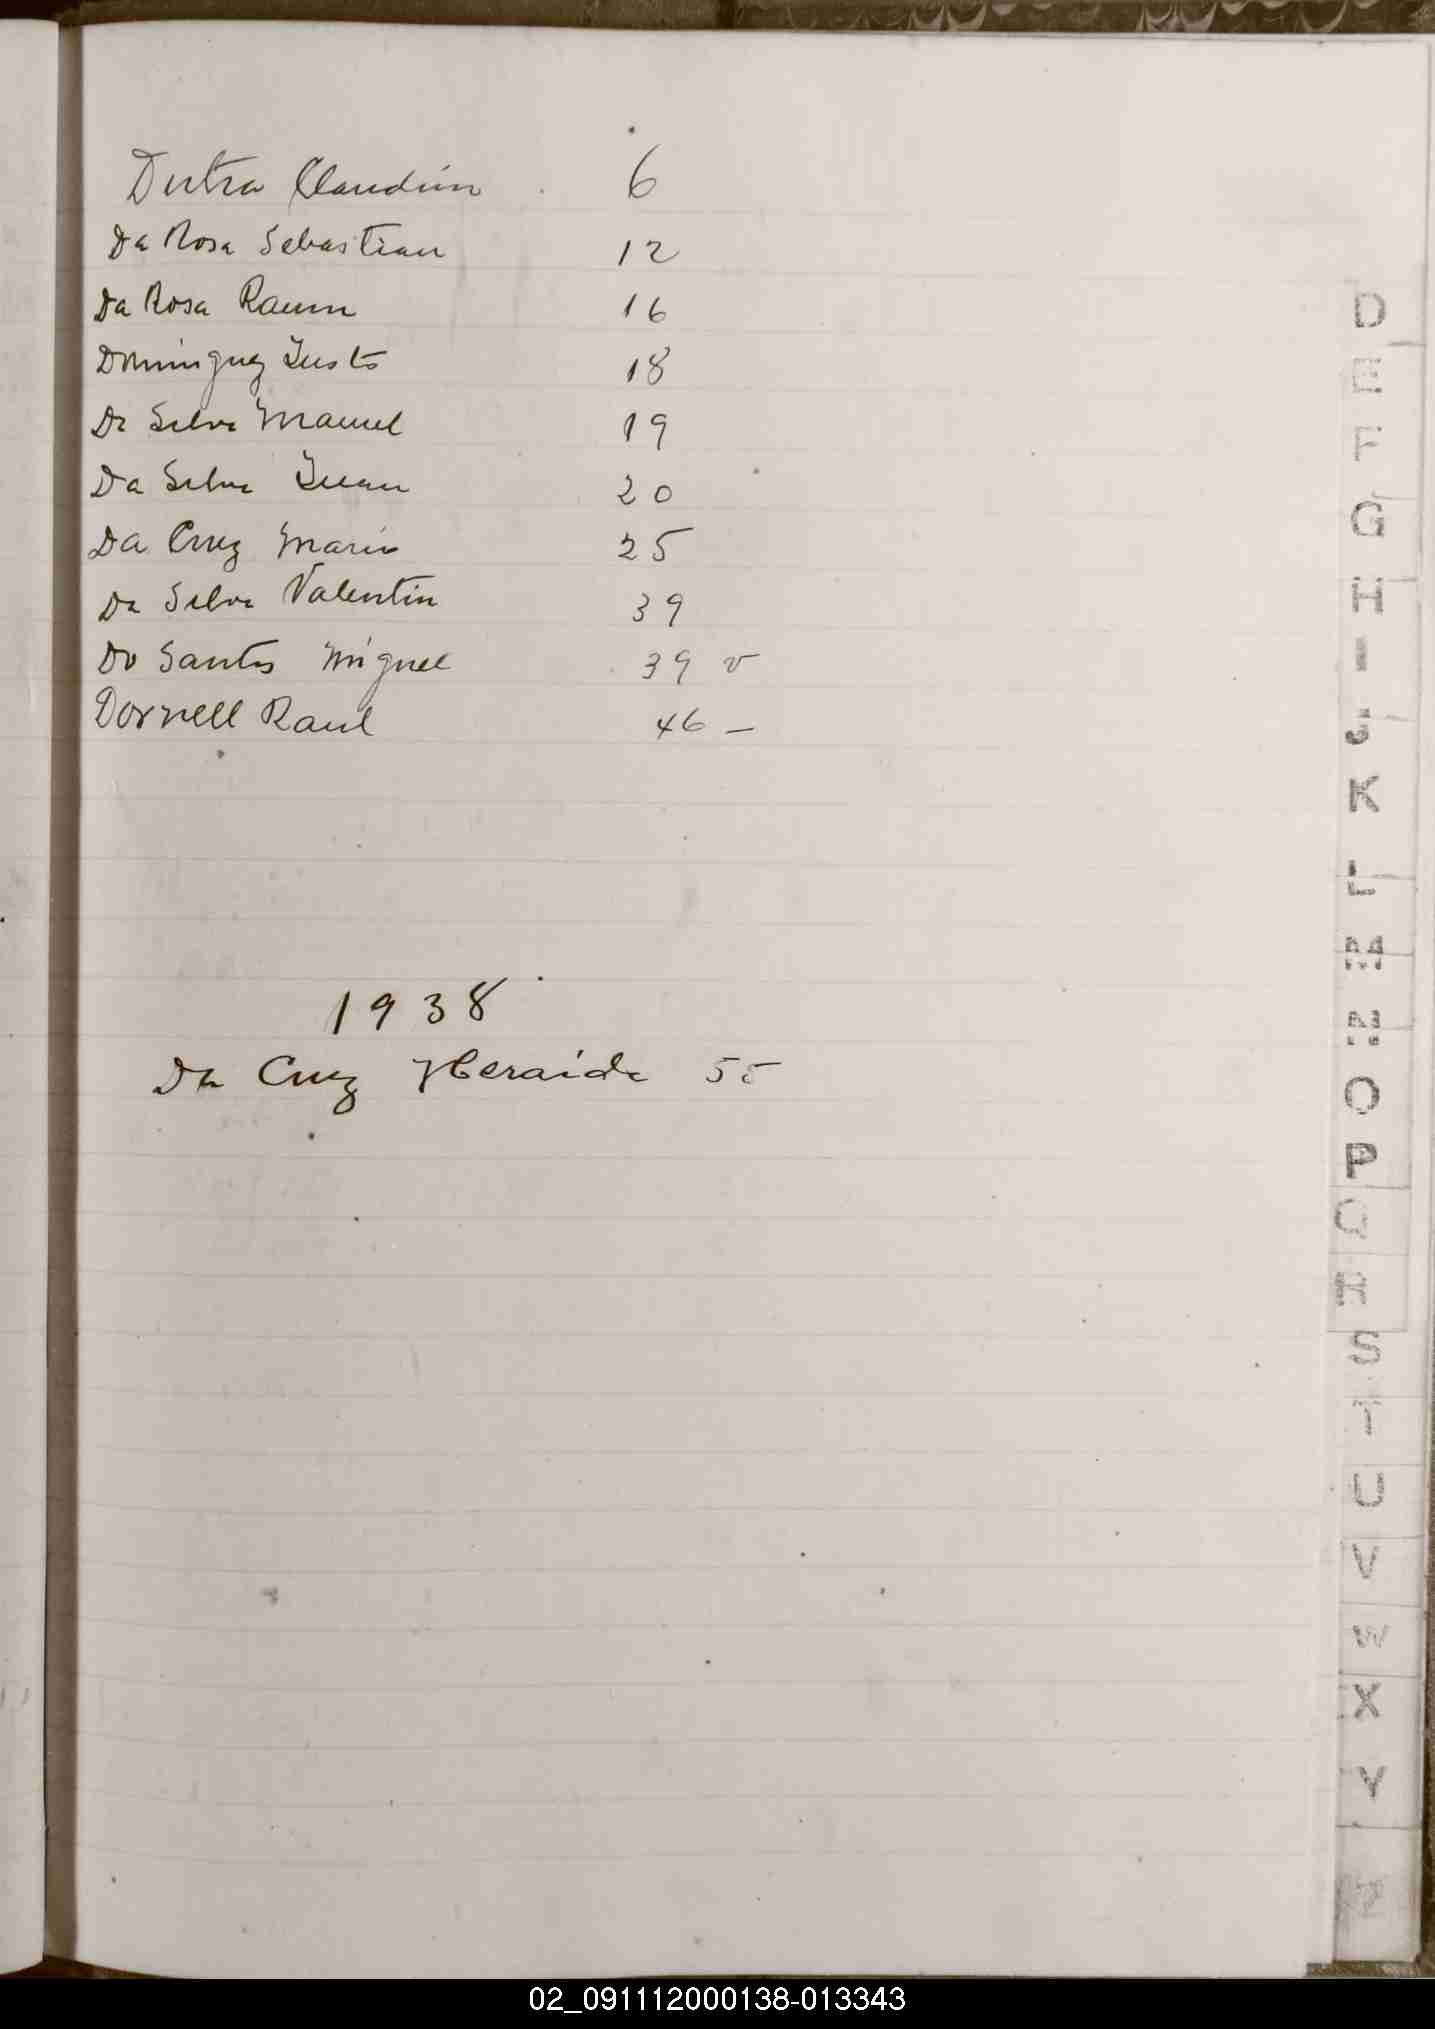 Dutra Claudin 6
Da Rosa Sebastian 12
Da Rosa Ramn 16
Dominguez Justo 18
Da Silva Manuel 19
Da Silva Juan 20
Da Cruz Mario 25
Da Silva Valentin 39
Do Santos Miguel 39 v
Dornell Raul 46 -
1938
Da Cruz Heraida 55
D
E
F
G
H
I
J
K
L
M
N
O
P
Q
R
S
T
U
V
W
X
Y
Z
02_091112000138-013343